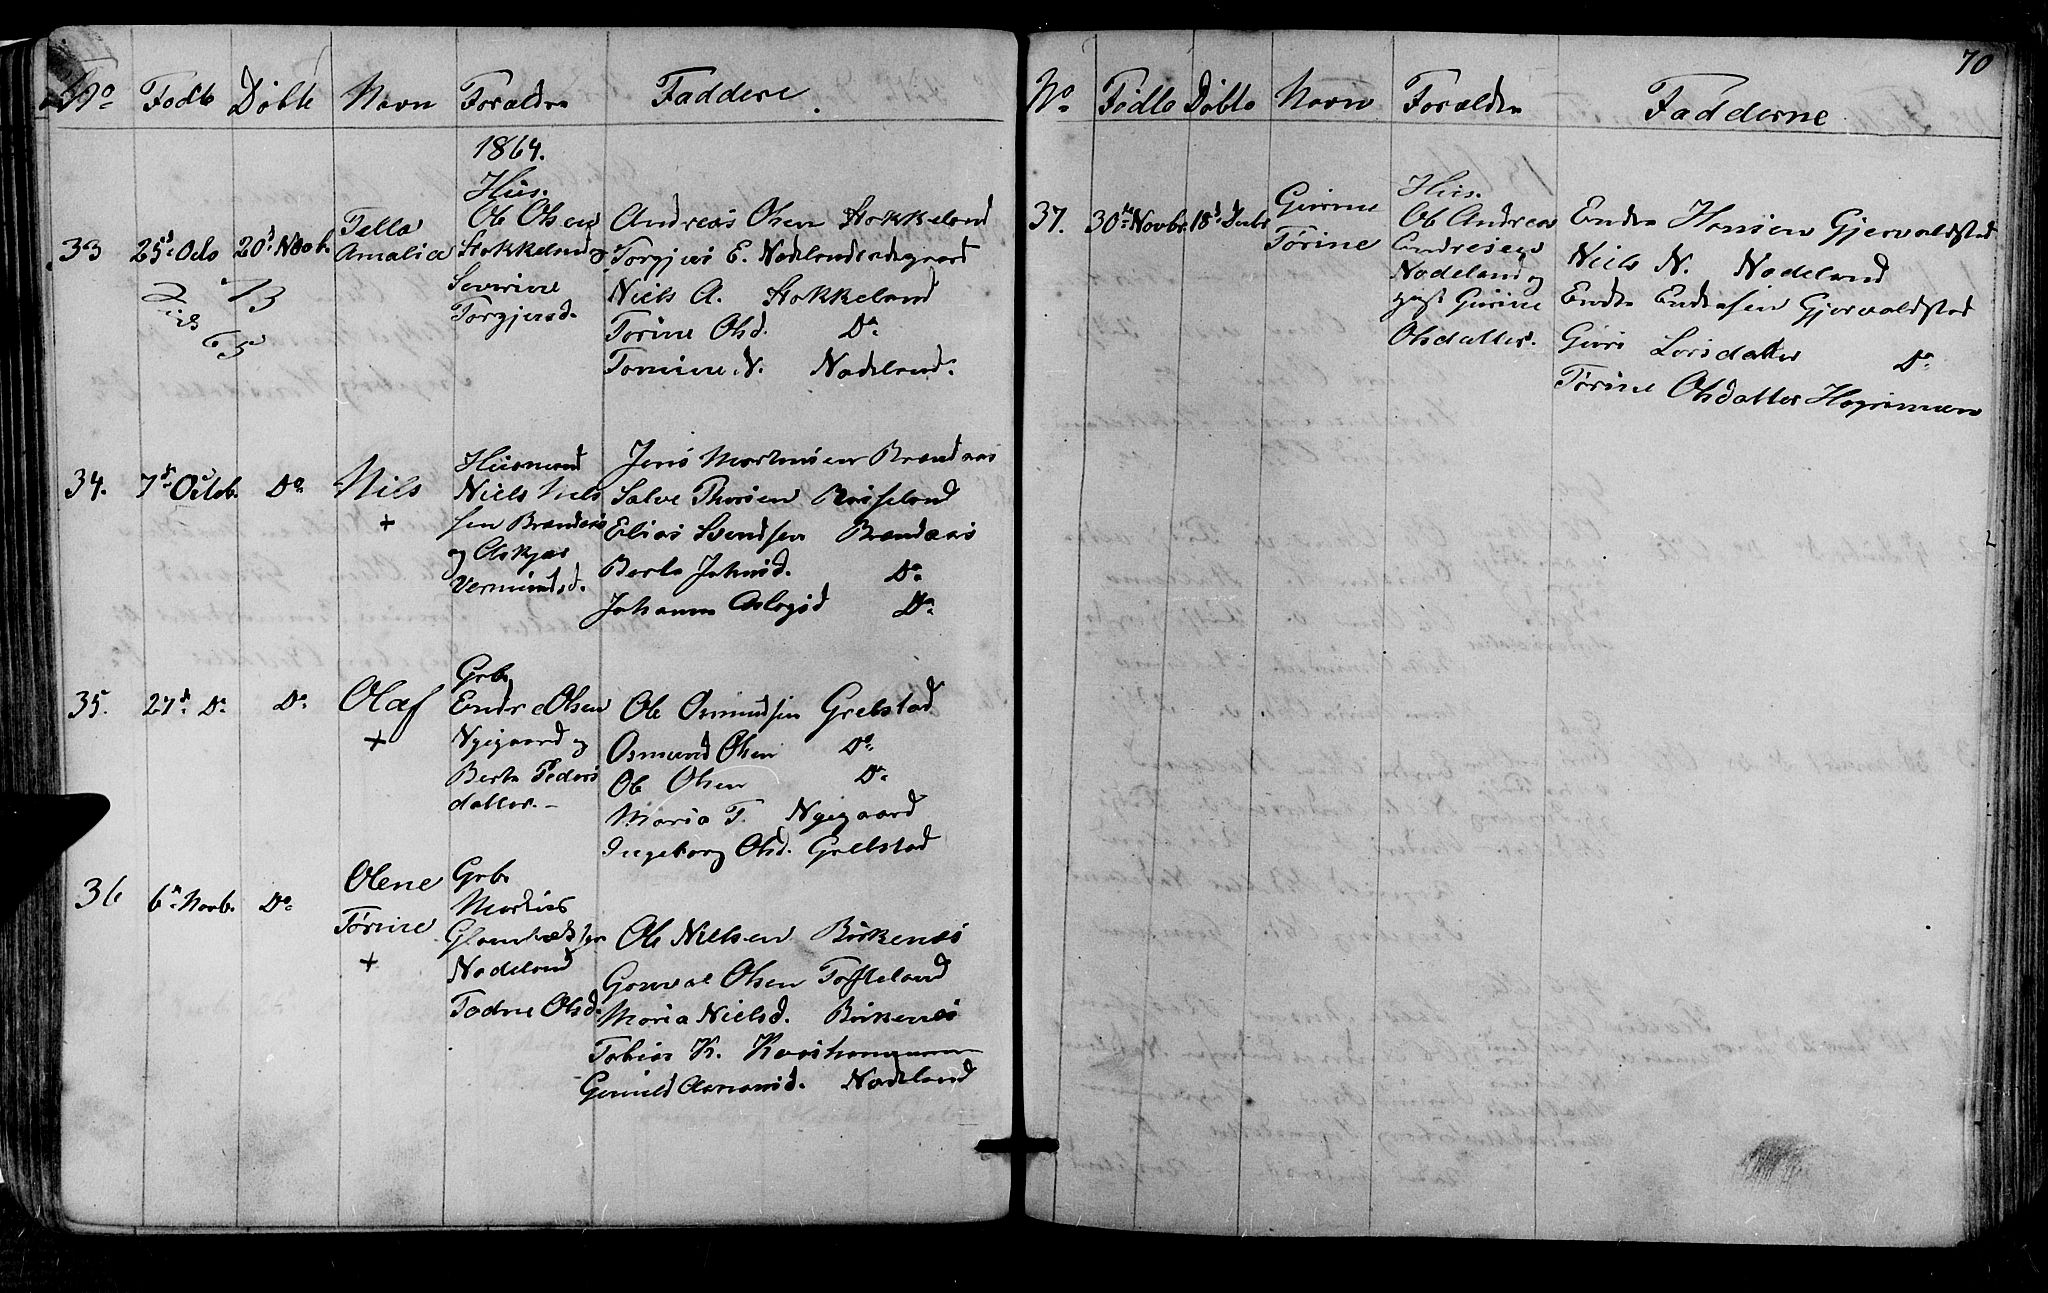 No Fødte Døbte Navn Forældre Faddere
1864.
33 25d Octo 20d Novb. Tella Amalia
Hüs.
Ole Olsen
Stokkeland og
Severine
Torgjusd.
Andreas Olsen Stokkeland
Torgjus E. Nodelandendegaard
Niels A. Stokkeland
Torine Olsd. Do
Tomine N. Nodeland.
34. 7d Octob. Do Nils
+
Hüsmand
Niels Niels
sen Brandaas
og Askjær
Vermundsd.
Jens Mortensen Brandaas
Salve Thorsen Rosseland
Elias Svendsen Brandaas
Berte Johnsd. Do
Johanne Aslagsd Do
35. 27d Do Do Olaf
+
Grb.
Endre Olsen
Nyegaard og
Berte Peders
datter.
Ole Osmundsen Grelstad
Osmund Olsen Do
Ole Olsen Do
Maria T. Nyegaard
Ingeborg Olsd. Grelstad
36 6te Novb. Do Olene
Tørine
+
Grb.
Markus
Nodeland
Tadne Olsd.
Ole Nielsen Birkenes
Gonval Olsen Tofteland
Maria Nielsd. Birkenes
Tobias K.
Gunild Aanensd. Nodeland
70
No Fødte Døbte Navn Forældre Fadderne
37. 30te Novbr. 18d Decbr Gurine
Tørine
Hüs.
Ole Andreas
Andreasen
Nodeland og
Gurine
Olsdatter.
Endre Hansen Gjervoldstad
Niels N. Nodeland
Endre Endresen Gjervoldstad
Guri Larsdatter Do
Tørine Olsdatter